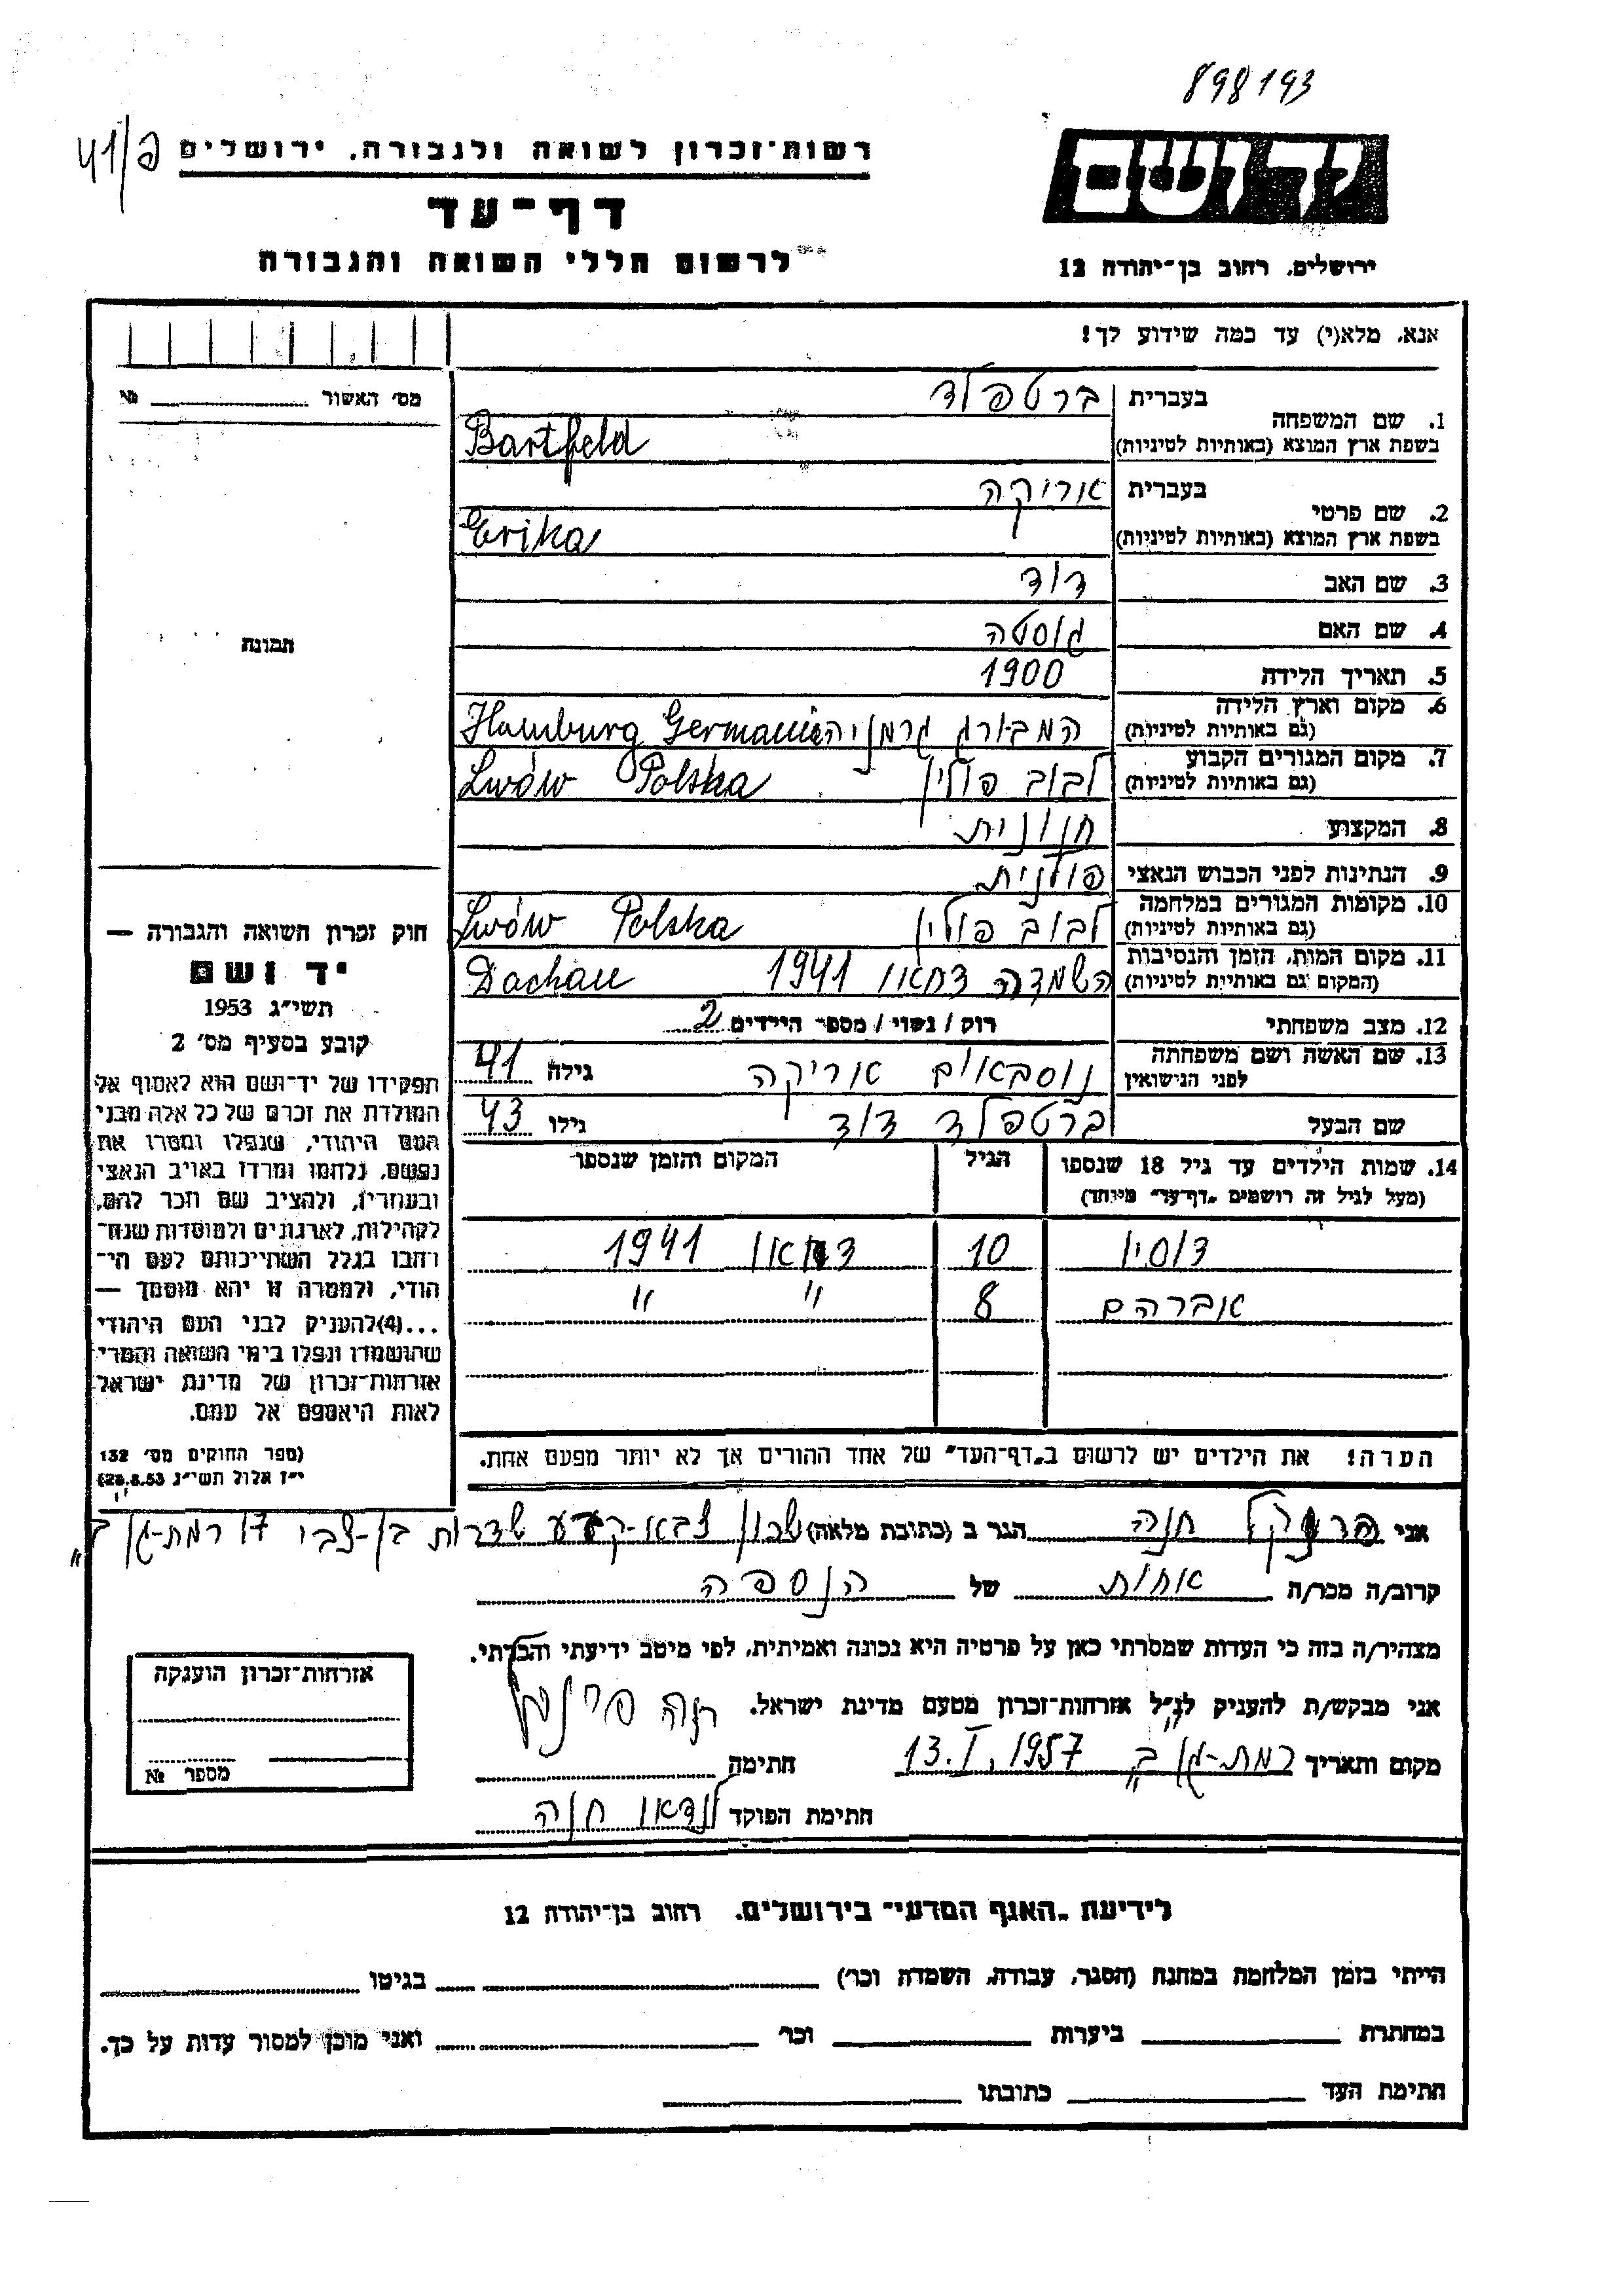 898193
41/פ
רשות־זכרון לשואה ולגבורה, ירושלים
דף־עד
לרשום חללי השואה והגבורה
יד ושם
ירושלים, רחוב בן־יהודה 12
אנא, מלא(י) עד כמה שידוע לך!
מס׳ האשור № 
1. שם המשפחה
בעברית ברטפלד
בשפת ארץ המוצא (באותיות לטיניות) Bartfeld
2. שם פרטי
בעברית אריקה
בשפת ארץ המוצא (באותיות לטיניות) Erika
3. שם האב דוד
4. שם האם גוסטה
5. תאריך הלידה 1900
6. מקום וארץ הלידה (גם באותיות לטיניות) המבורג גרמניה Hamburg
7. מקום המגורים הקבוע (גם באותיות לטיניות) לבוב פולין Lwów Polska
8. המקצוע חנונית
9. הנתינות לפני הכבוש הנאצי פולנית
10. מקומות המגורים במלחמה (גם באותיות לטיניות) לבוב פולין Lwów Polska
11. מקום המות, הזמן והנסיבות (המקום גם באותיות לטיניות) השמדה דחאו 1941 Dachau
12. מצב משפחתי רוק / נשוי / מספר הילדים 2
13. שם האשה ושם משפחתה לפני הנישואין נוסבאום אריקה גילה 41
שם הבעל ברטפלד דוד גילו 43
14. שמות הילדים עד גיל 18 שנספו
(מעל לגיל זה רושמים „דף־עד״ מיוחד)
הגיל
המקום והזמן שנספו
10 דחאו 1941
אברהם 8 " "
הערה! את הילדים יש לרשום ב„דף־העד״ של אחד ההורים אך לא יותר מפעם אחת.
תמונת
חוק זכרון השואה והגבורה —
יד ושם
תשי״ג 1953
קובע בסעיף מס׳ 2
תפקידו של יד־ושם הוא לאסוף אל
המולדת את זכרם של כל אלה מבני
העם היהודי, שנפלו ומסרו את
נפשם, נלחמו ומרדו באויב הנאצי
ובעוזריו, ולהציב שם וזכר להם,
לקהילות, לארגונים ולמוסדות שנח־
רחבו בגלל השתייכותם לעם הי־
הודי, ולמטרה זו יהא מוסמך —
...(4)להעניק לבני העם היהודי
שהושמדו ונפלו בימי השואה והמרי
אזרחות־זכרון של מדינת ישראל
לאות היאספם אל עמם.
(ספר החוקים מס׳ 132
י״ז אלול תשי״ג 28.8.53)
אני פרנקל חנה הגר ב (כתובת מלאה) שכון צבא-קבע שדרות בן-צבי 17 רמת-גן ב״
קרוב/ה מכר/ה אחות של הנספה
מצהיר/ה בזה כי העדות שמסרתי כאן על פרטיה היא נכונה ואמיתית, לפי מיטב ידיעתי והכרתי.
אני מבקש/ת להעניק לנ״ל אזרחות־זכרון מטעם מדינת ישראל.
מקום ותאריך רמת-גן ב״ 13.I.1957 חתימה
חתימת הפוקד לנדאו חנה
אזרחות־זכרון הוענקה
מספר №
לידיעת „האגף המדעי״ בירושלים, רחוב בן־יהודה 12
הייתי בזמן המלחמה במחנה (הסגר, עבודה, השמדה וכר׳) בגיטו
במחתרת ביערות וכר׳ ואני מוכן למסור עדות על כך.
חתימת העד כתובתו